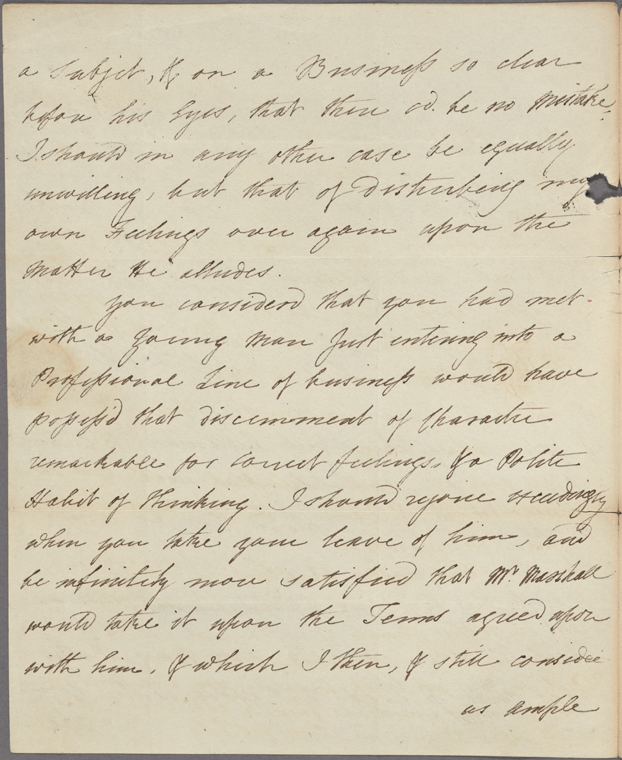 a Subject, & on a Business so clear
before his Eyes, that there cd. be no Mistake.
I should in any other case be equally
unwilling, but that of Disturbing my
own Feelings over again upon the
Matter He alludes.
You considerd that you had met
with a Young Man just entering into a
Professional Line of business would have
possess'd that discernment of Character
remarkable for correct feelings, & a Polite
Habit of thinking. I should rejoice exceedingly
when you take your leave of him, and
be infinitely more satisfied that Mr Marshall
would take it upon the Terms agreed upon
with him, & which I then, & still consider
as ample